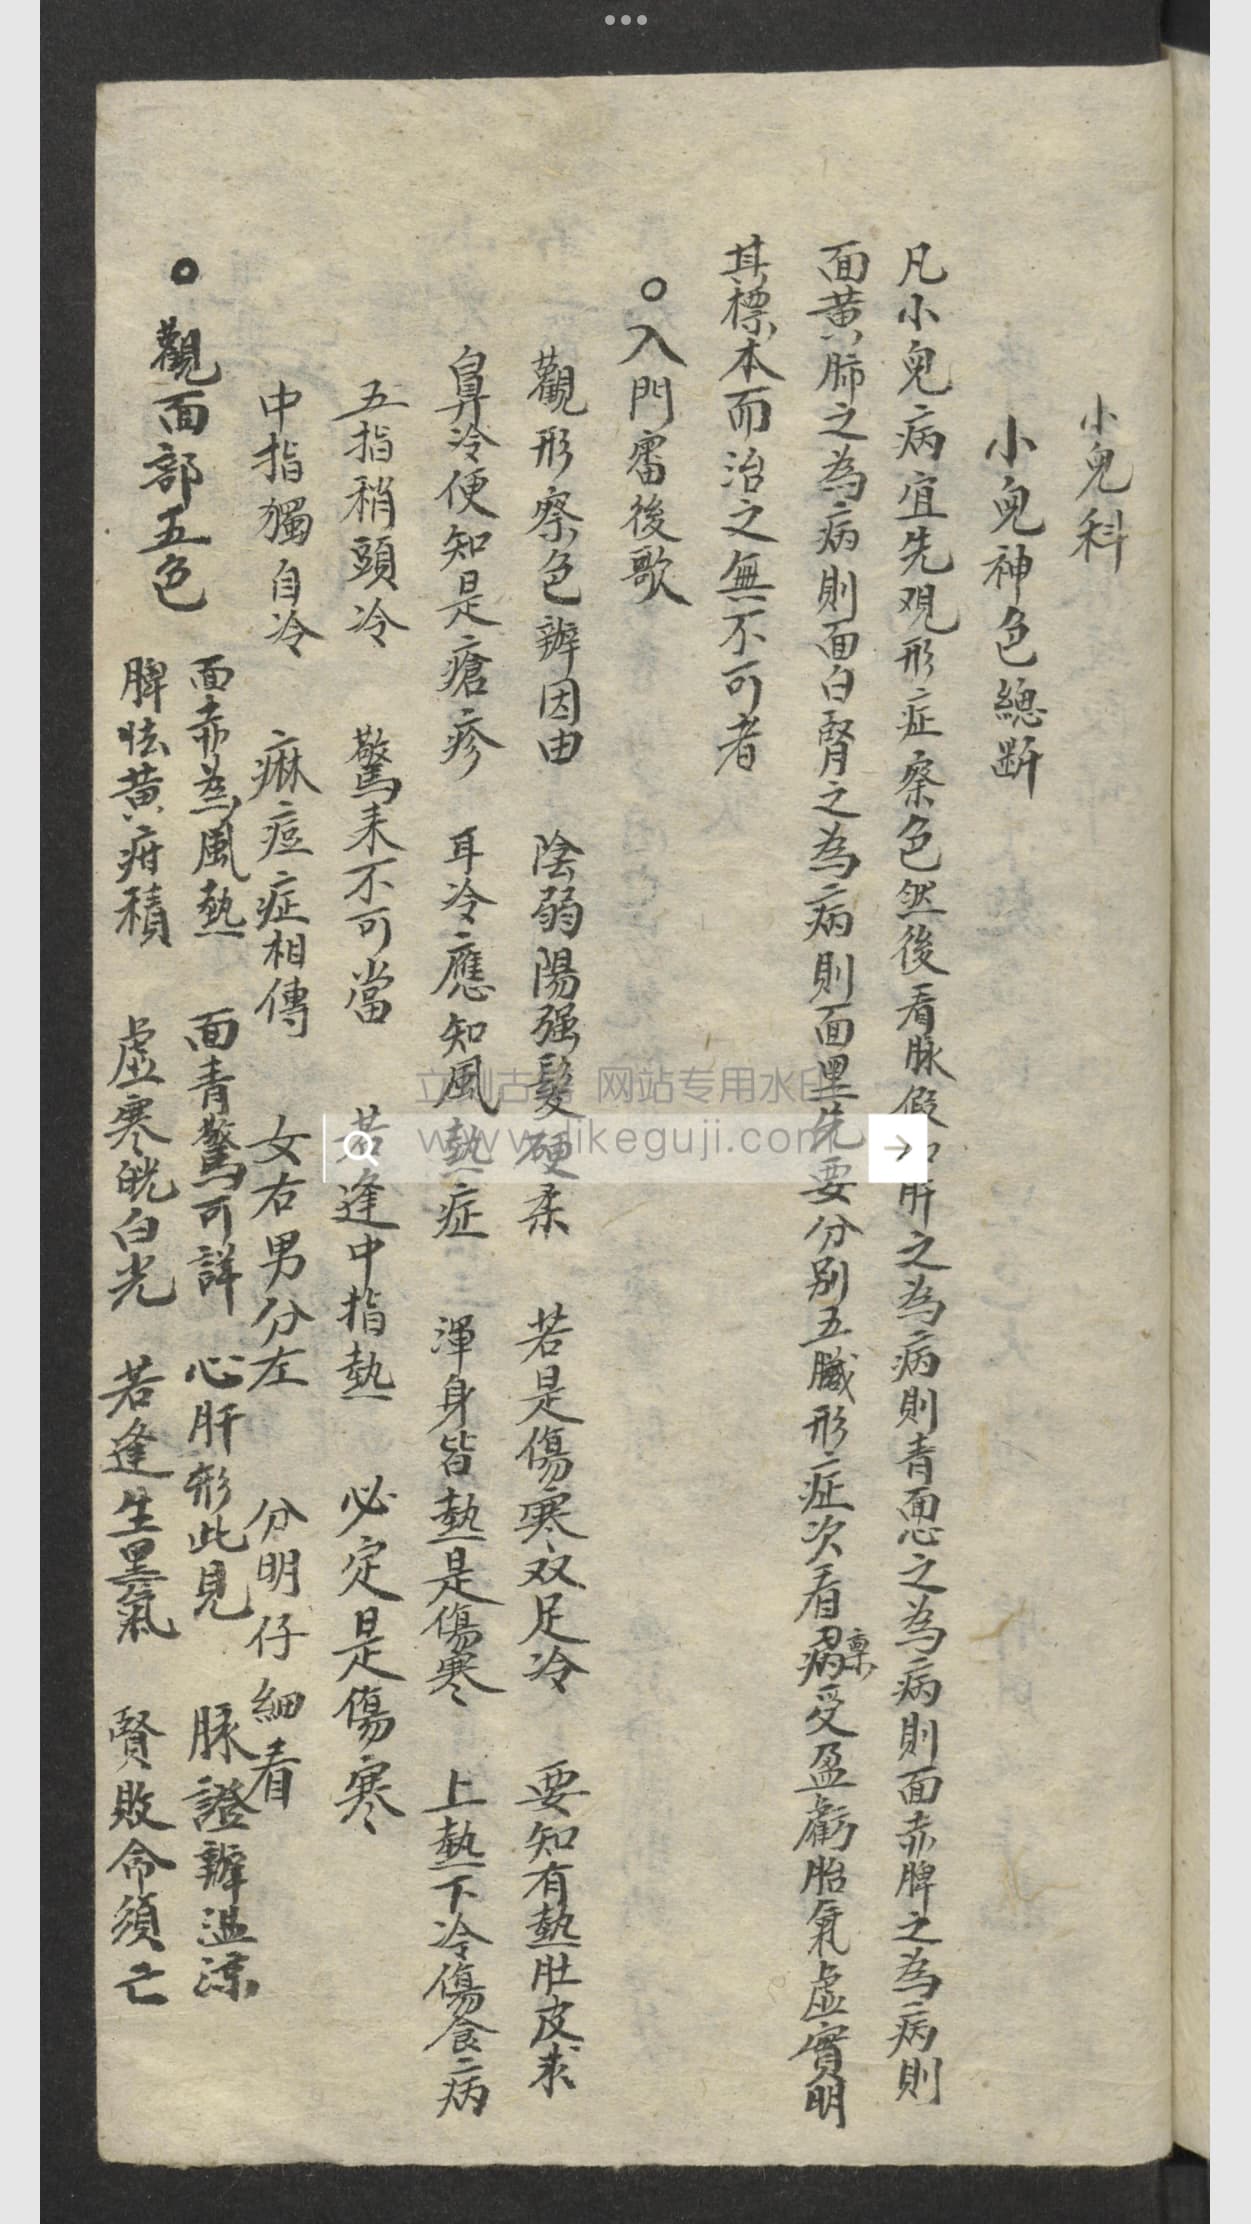 小兒科
小兒神色總斷
凡小兒病宜先观形症察色然後看脉假如肝之為病則青面心之為病則面赤脾之為病則
面黃肺之為病則面白腎之為病則面黑先要分别五臟形症次看病稟受盈虧胎氣虛實明
其標本而治之無不可者
○入門審後歌
觀形察色辨因由 陰弱陽强髮硬柔 若是傷寒双足冷 要知有熱肚皮求
鼻冷便知是瘡疹 耳冷應知風熱症 渾身皆熱是傷寒 上熱下冷傷食病
五指稍頭冷 驚來不可當 若逢中指熱 必定是傷寒
中指獨自冷 麻痘症相傳 女右男分左 分明仔細看
○觀面部五色
面赤為風熱 面青驚可詳 心肝形此見 脉證辨温涼
脾怯黃疳積 虛寒㿠白光 若逢生黑氣 腎敗命須亡
立刻古籍 网站专用水印
www.likeguji.com